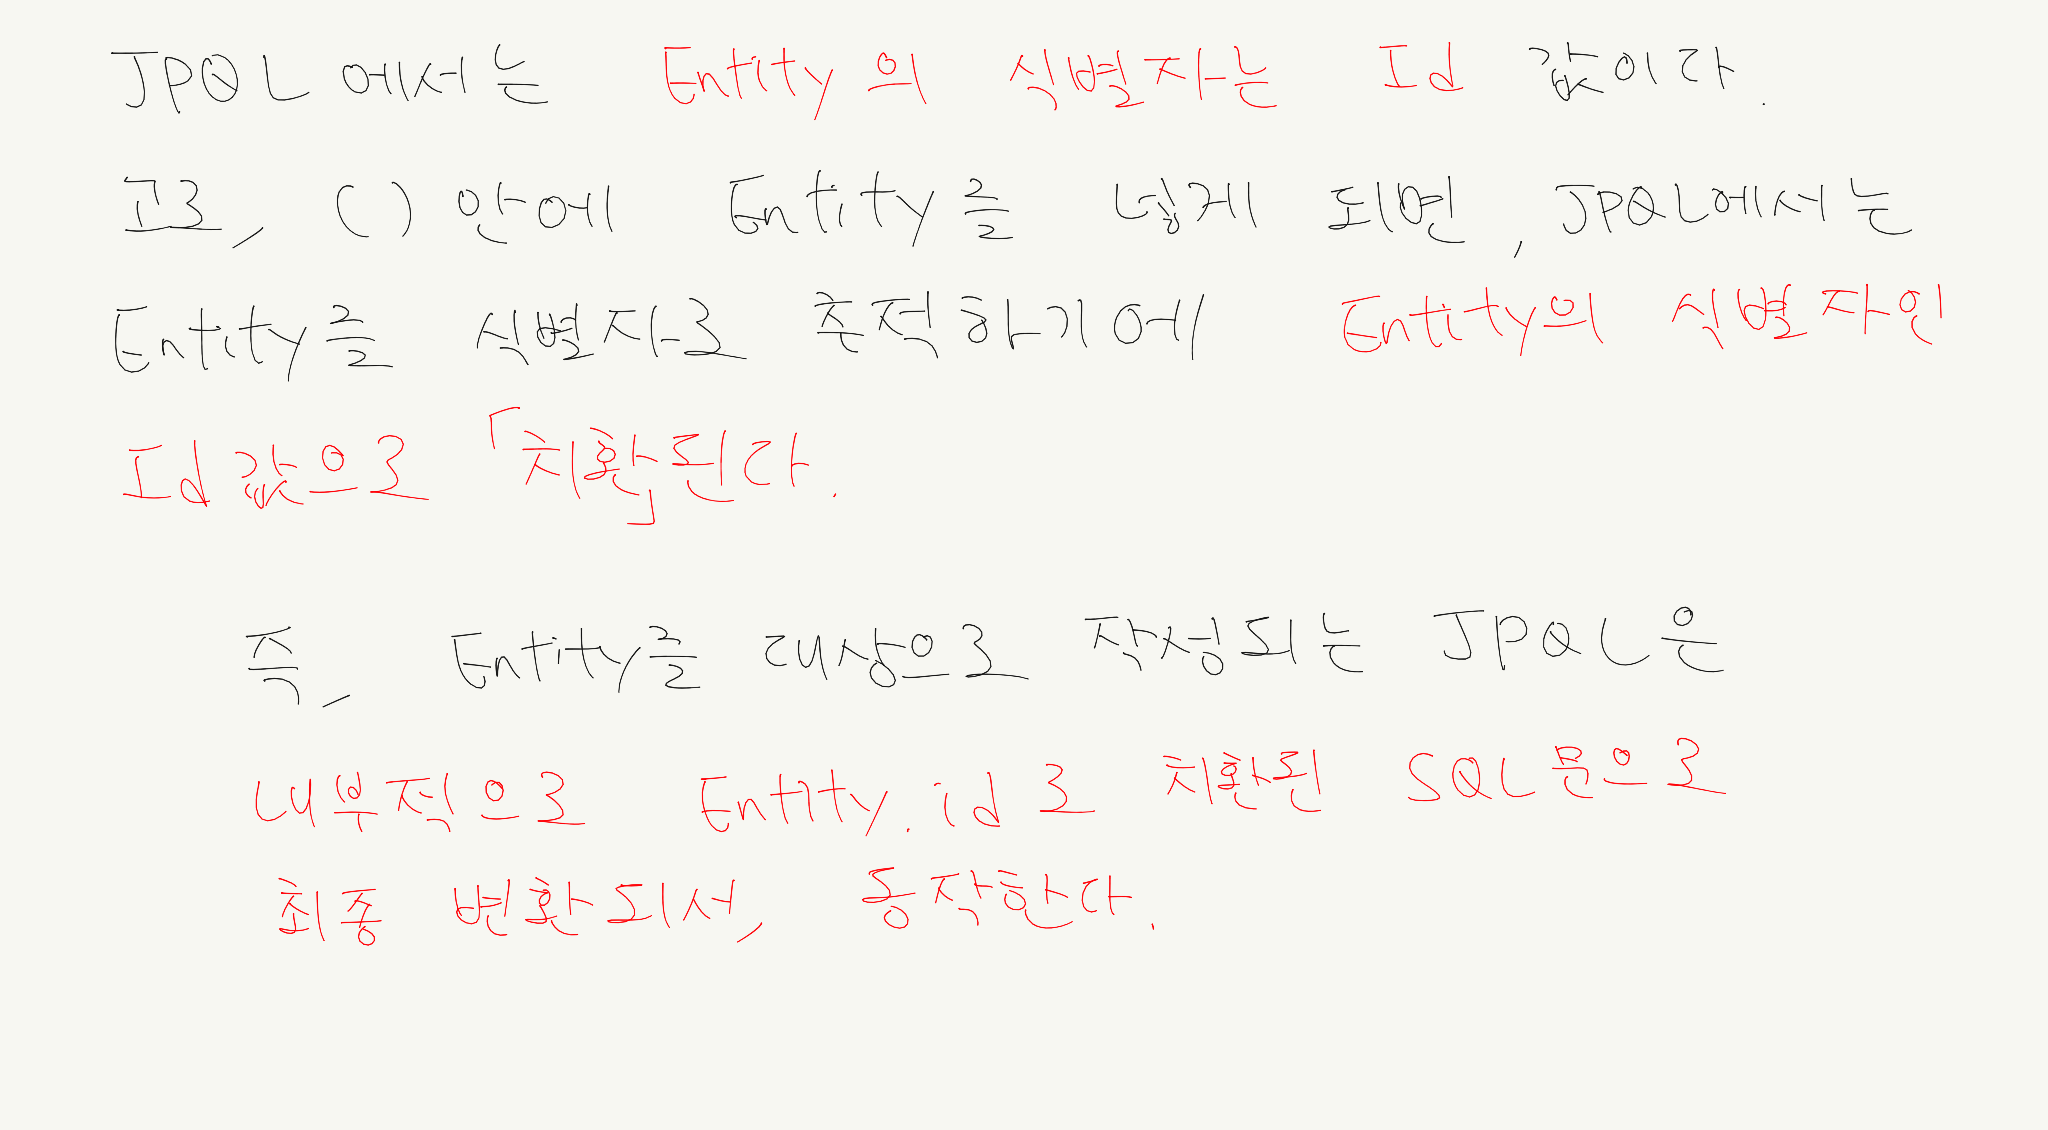 JPQL에서는 Entity의 식별자는 Id 값이다.
고로, ( ) 안에 Entity를 넣게 되면, JPQL에서는
Entity를 식별자로 추적하기에 Entity의 식별자인
Id값으로 「치환」된다.
즉, Entity를 대상으로 작성되는 JPQL은
내부적으로 Entity.id로 치환된 SQL문으로
최종 변환되서, 동작한다.